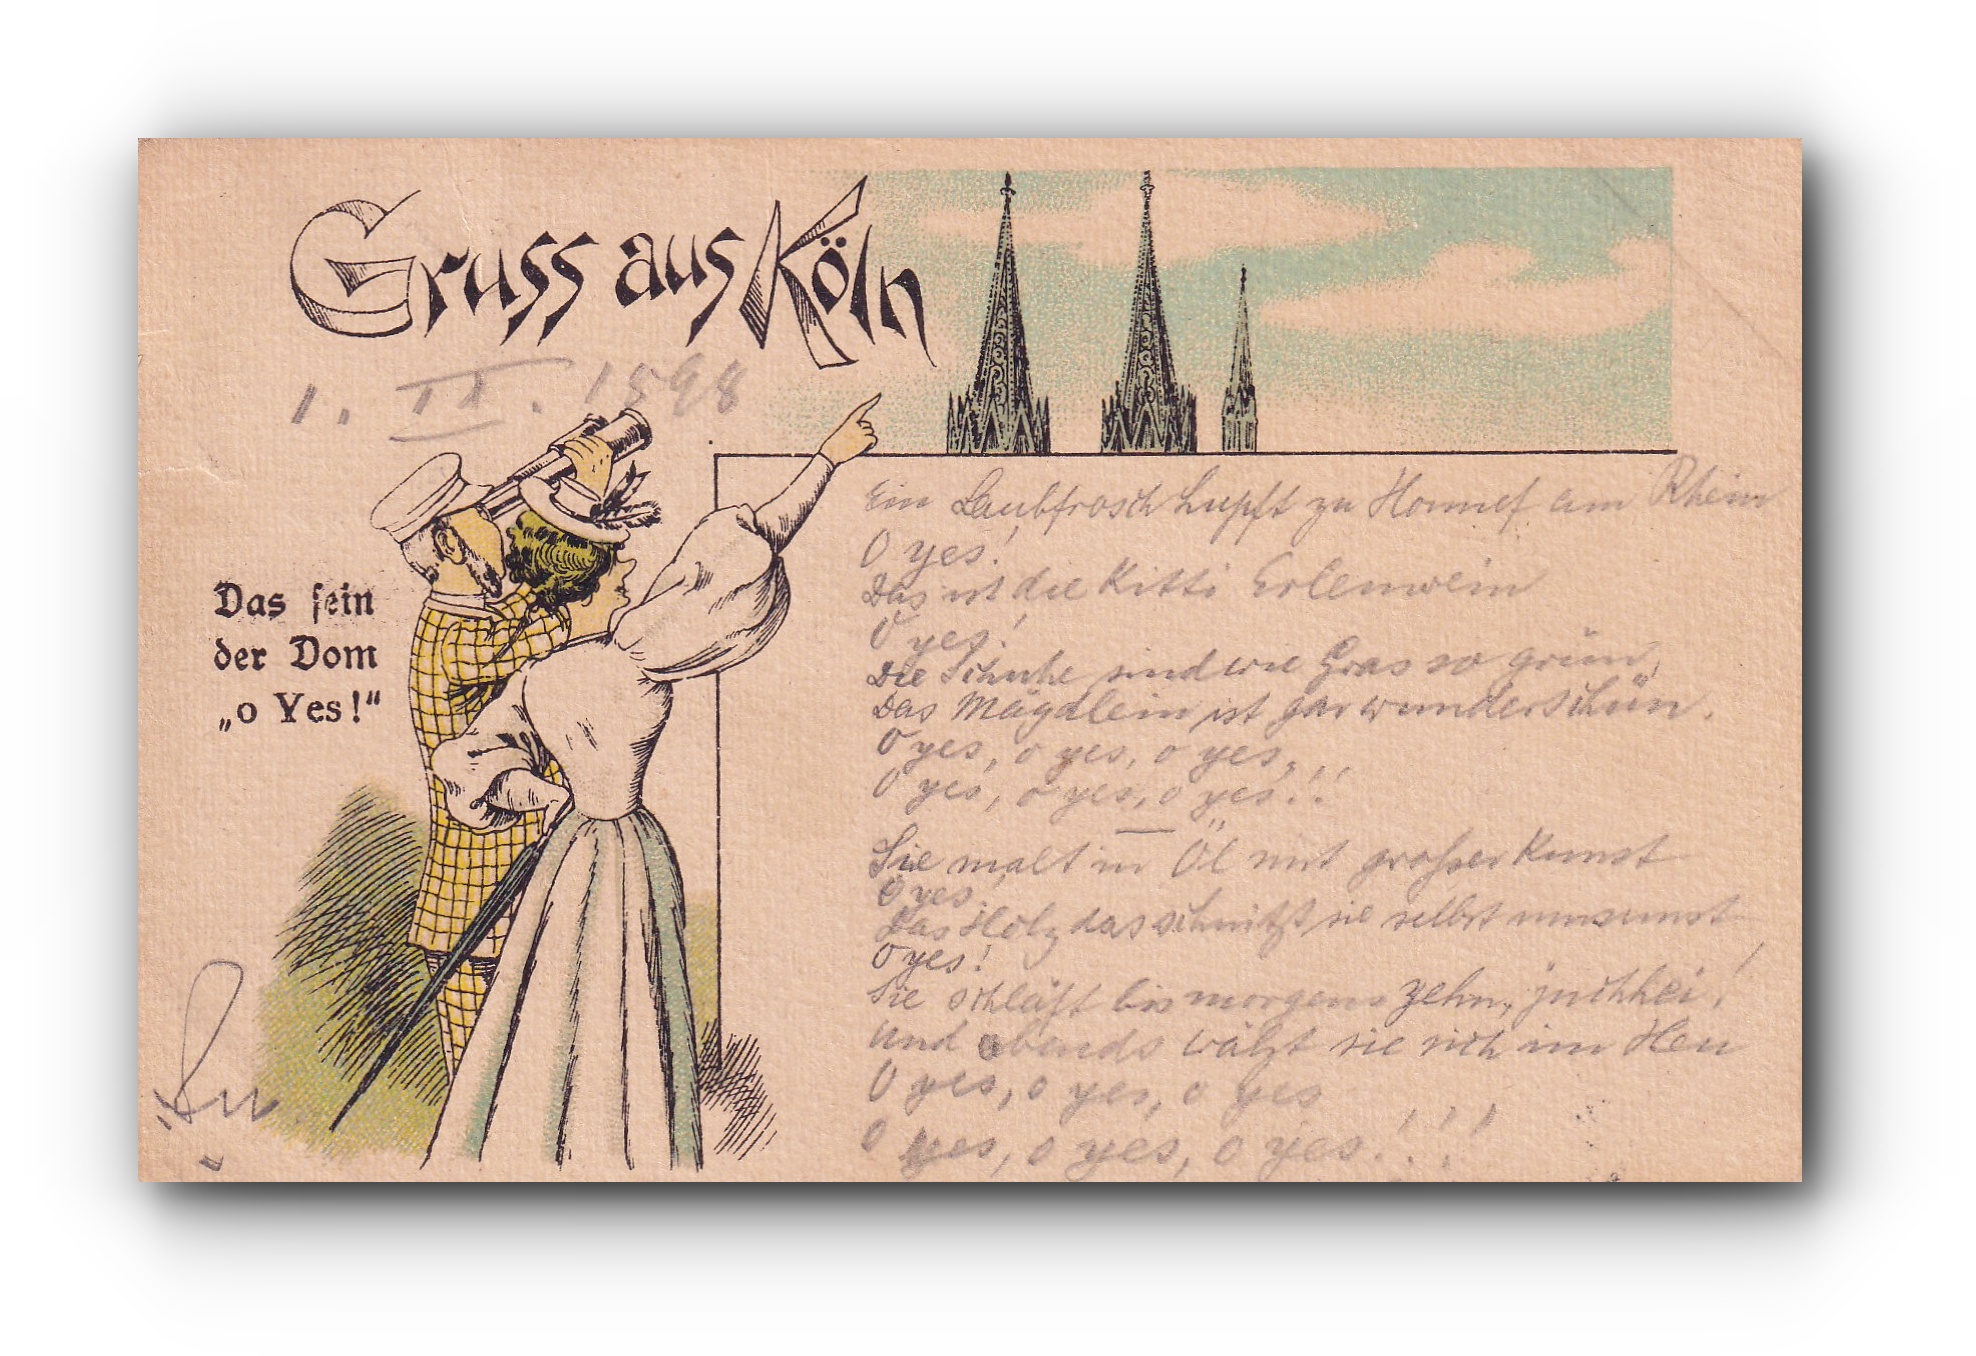 Gruss aus Köln
1. IX. 1898
Das sein
der Dom
„o Yes!“
Ein Laubfrosch hupft zu Honnef am Rhein
O yes!
Das ist die Kitti Erlenwein
O yes!
Die Schuhe sind wie Gras so grün,
Das Mägdlein ist gar wunderschön.
O yes, o yes, o yes,
O yes, o yes, o yes!!
Sie malt in Öl mit großer Kunst
O yes.
Das Holz das schnitzt sie selbst umsunst
O yes!
Sie schläft bis morgens zehn, juchhei!
Und abends wälzt sie sich im Heu
O yes, o yes, o yes
O yes, o yes, o yes!!!